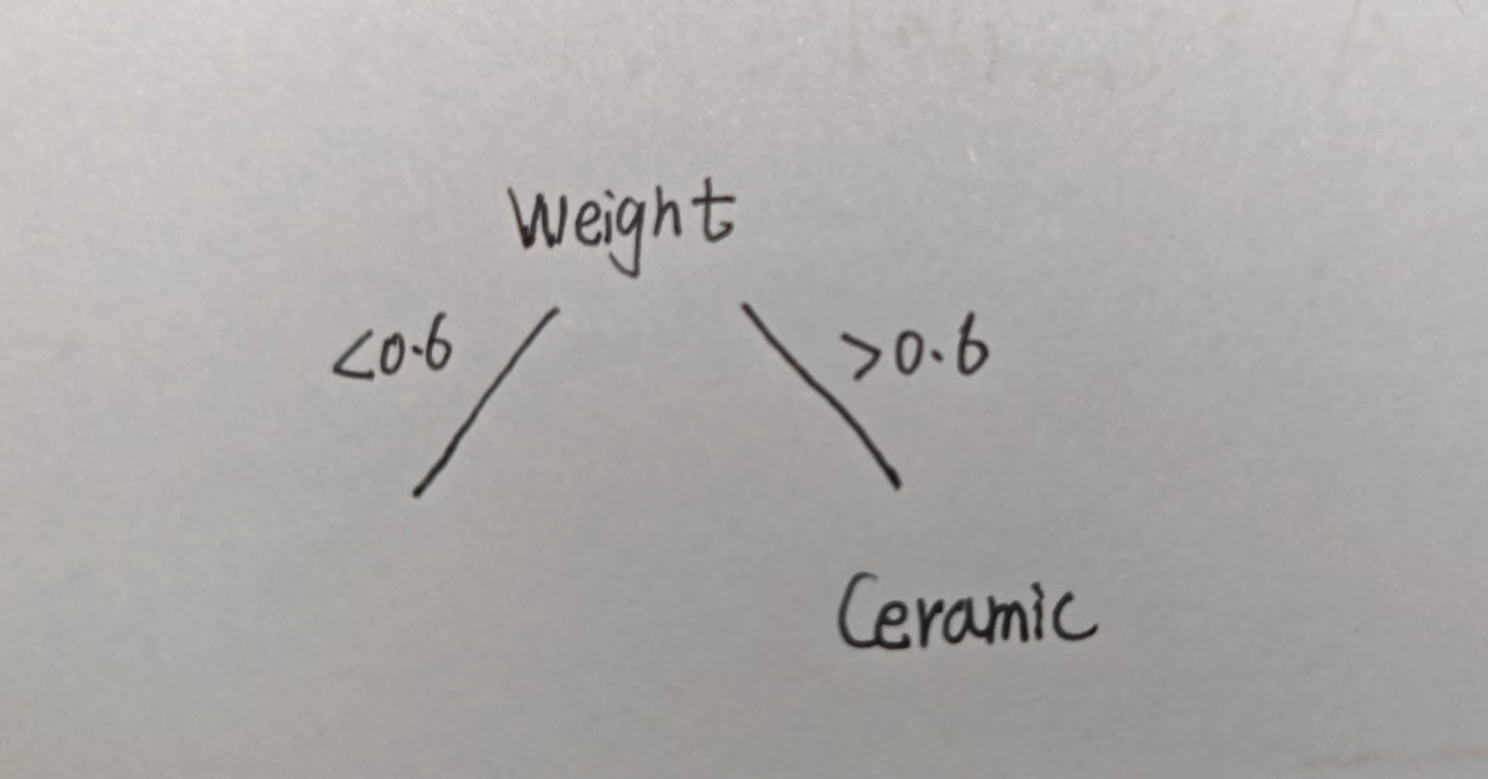 Weight
<0.6 >0.6
Ceramic